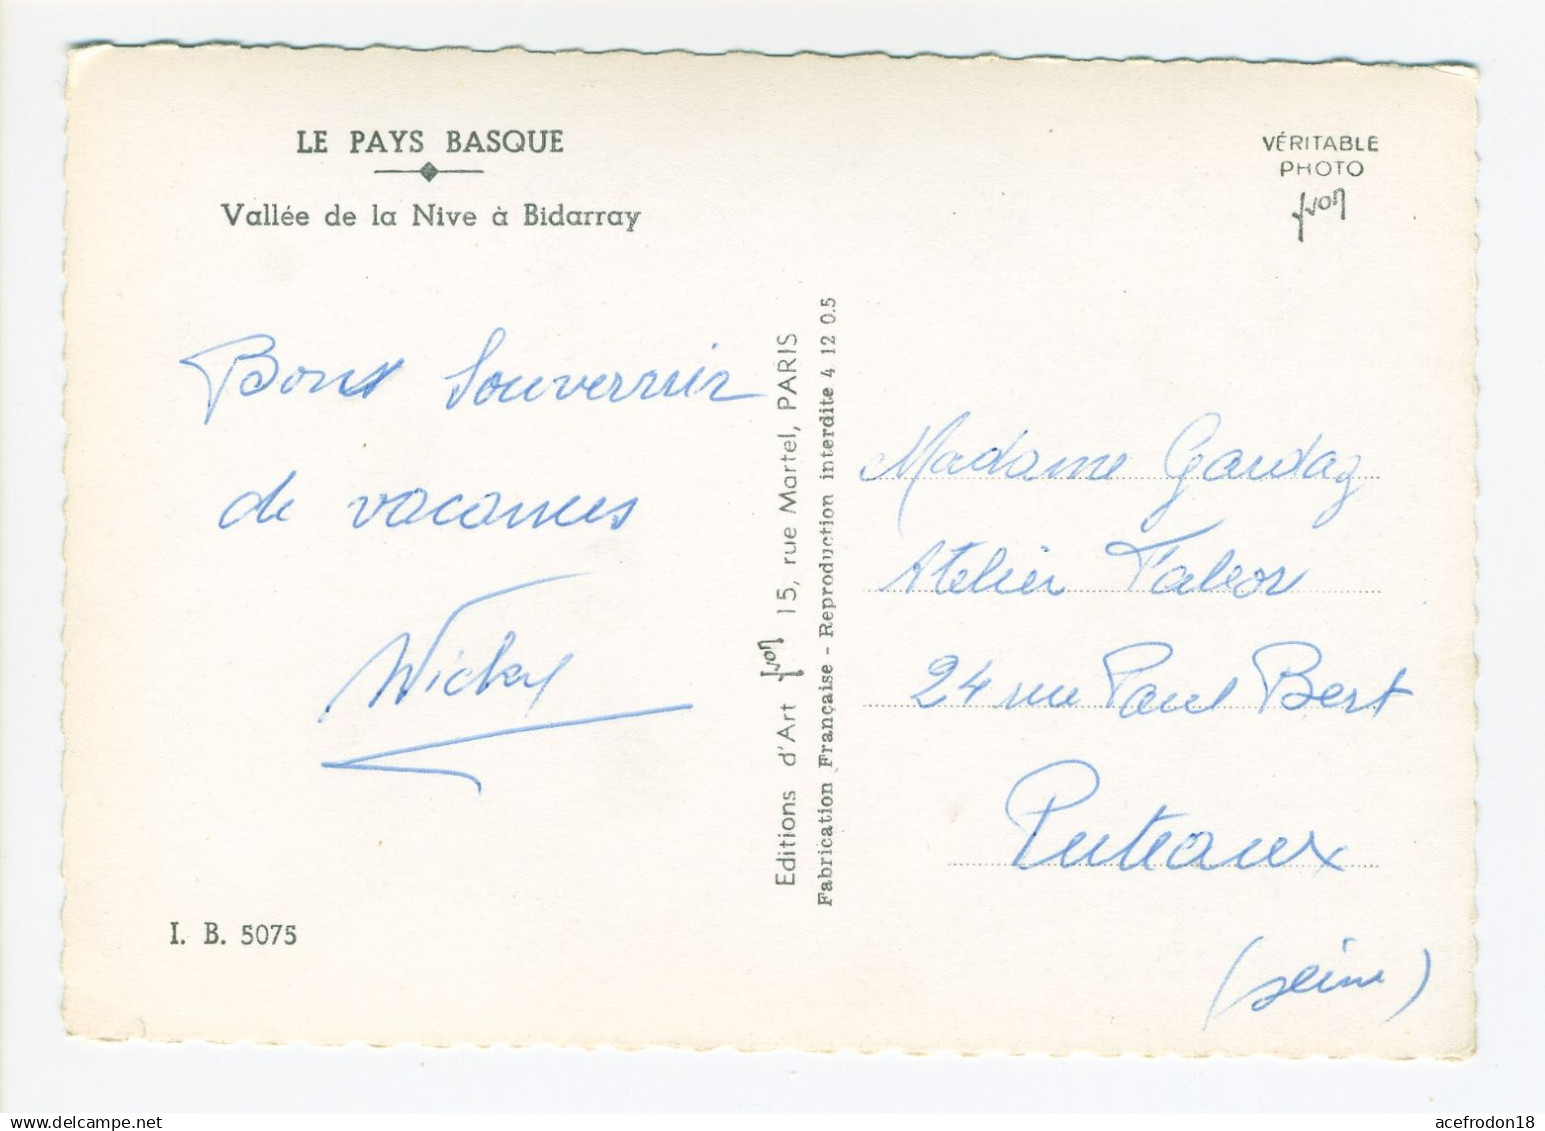 LE PAYS BASQUE
Vallée de la Nive à Bidarray
VÉRITABLE
PHOTO
Yvon
Bons Souvernir
de vacances
Wicky
I. B. 5075
Editions d'Art Yvon 15, rue Martel, PARIS
Fabrication Française - Reproduction interdite 4 12 0.5
Madame Gardaz
Atelier
24 rue Paul Bert
Puteaux
(Seine)
acefrodon18